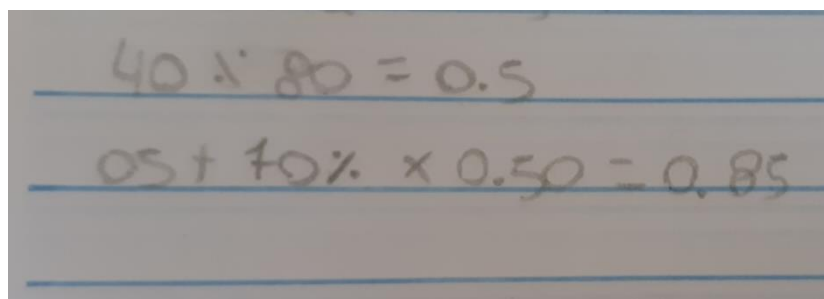 40 ÷ 80 = 0.5
05 + 70% × 0.50 = 0.85